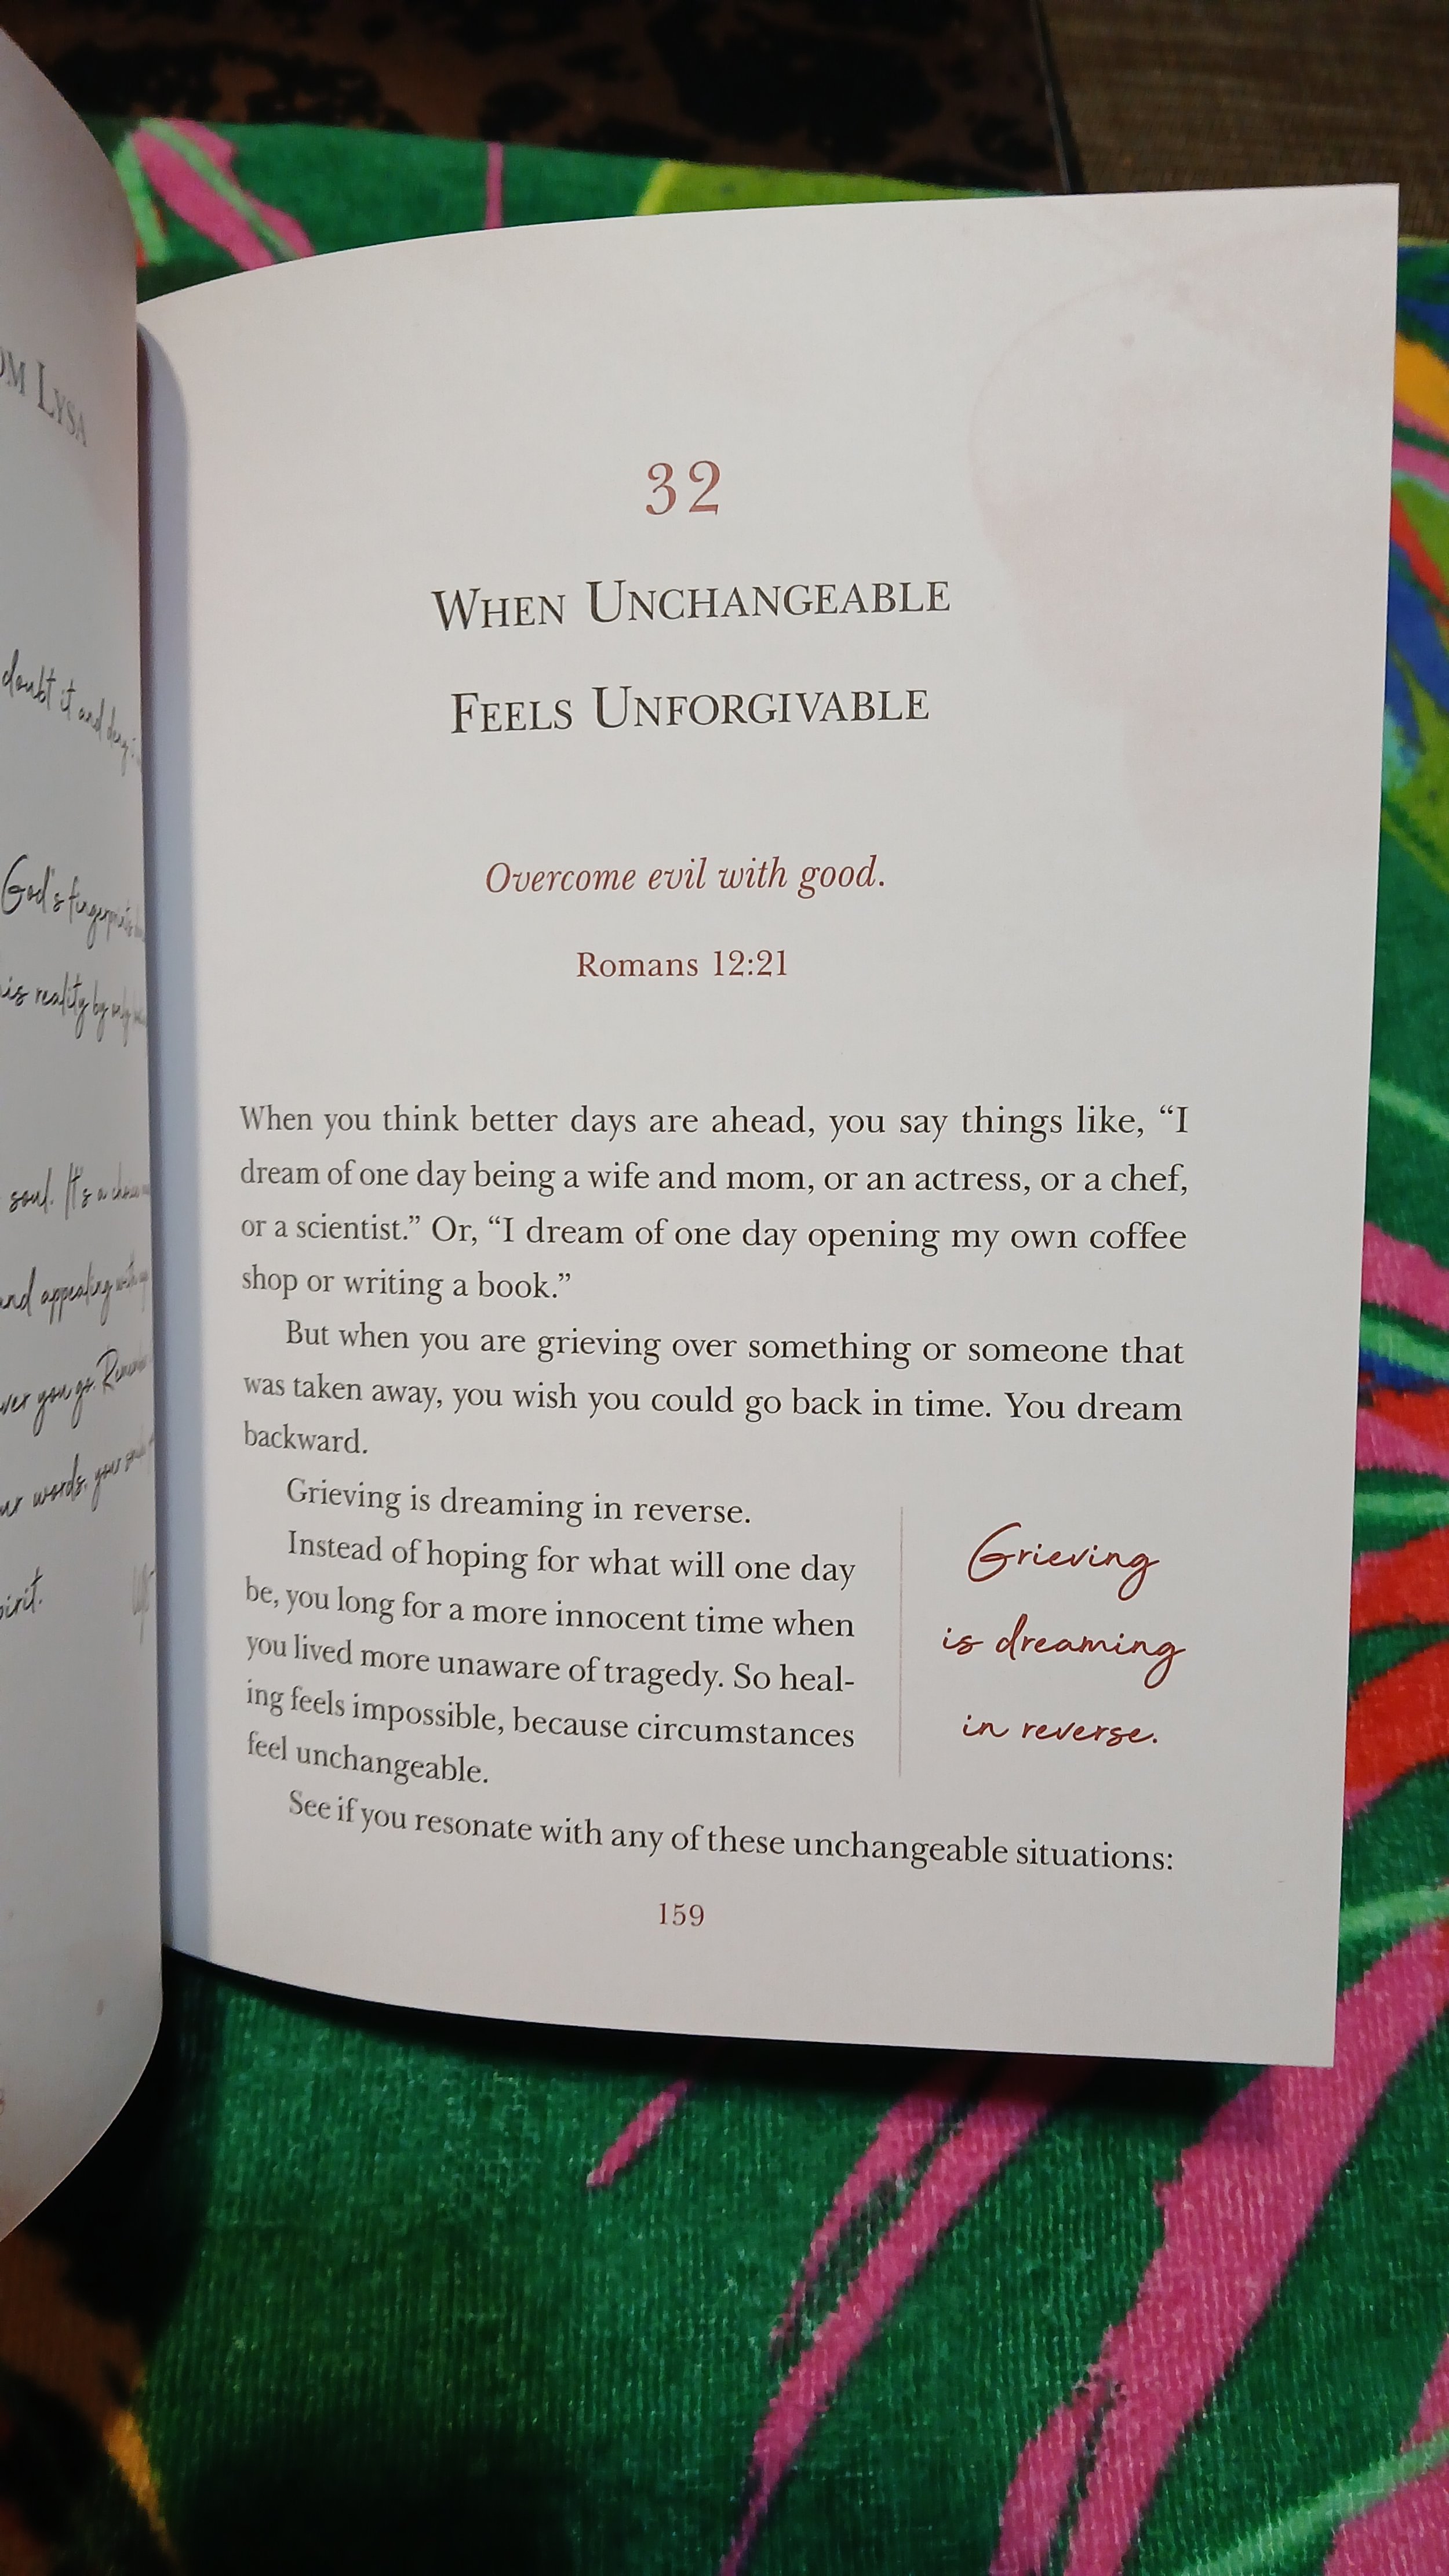 LYSA
doubt it and
God's fingerprints
is reality by
soul. It's a
and appealing
you go.
words, your
32
WHEN UNCHANGEABLE
FEELS UNFORGIVABLE
Overcome evil with good.
Romans 12:21
When you think better days are ahead, you say things like, “I
dream of one day being a wife and mom, or an actress, or a chef,
or a scientist.” Or, “I dream of one day opening my own coffee
shop or writing a book.”
But when you are grieving over something or someone that
was taken away, you wish you could go back in time. You dream
backward.
Grieving is dreaming in reverse.
Instead of hoping for what will one day
be, you long for a more innocent time when
you lived more unaware of tragedy. So heal-
ing feels impossible, because circumstances
feel unchangeable.
Grieving
is dreaming
in reverse.
See if you resonate with any of these unchangeable situations:
159